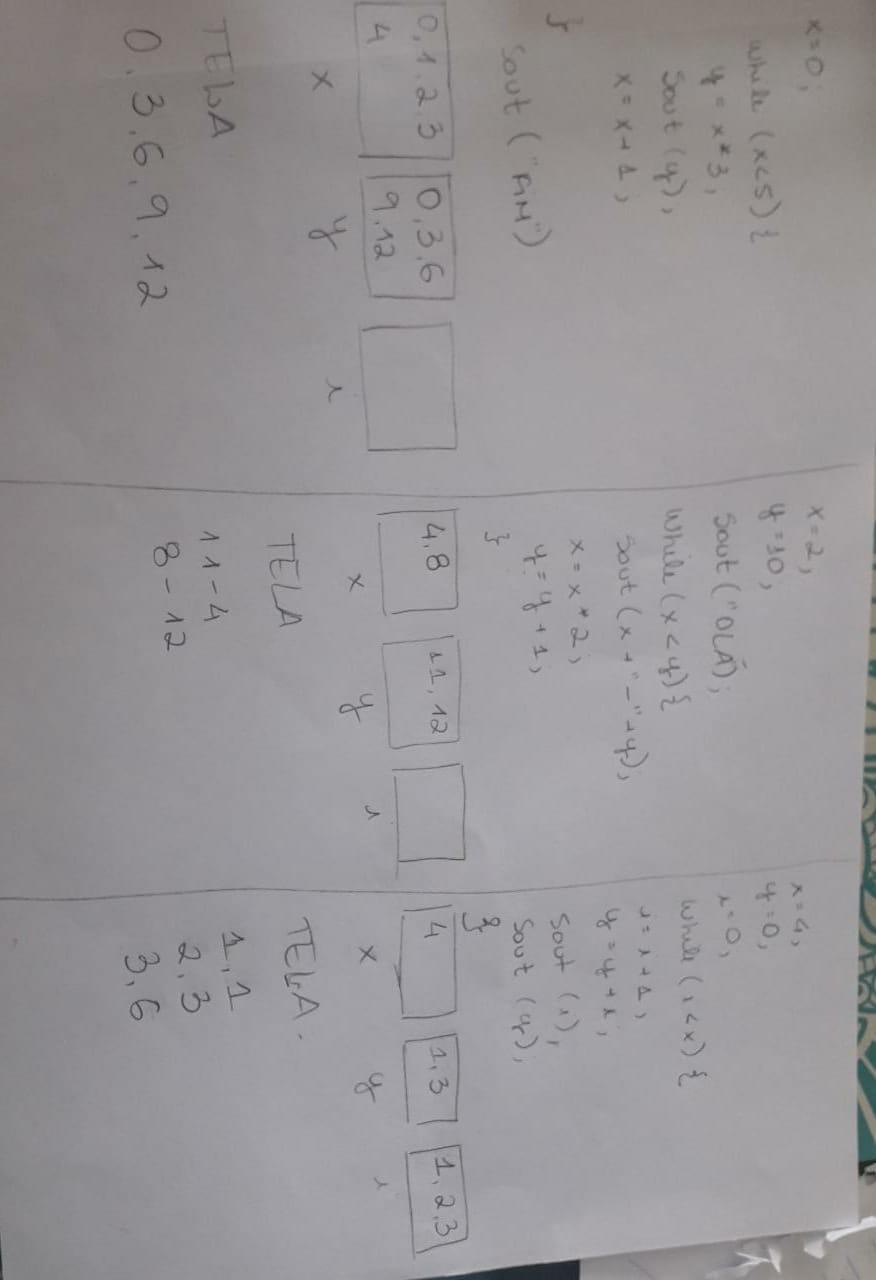 x=0;
while (x<5) {
y = x*3;
Sout (y);
x = x+1;
}
Sout ("FIM")
0,1,2,3
4
0,3,6
9,12
x
y
i
TELA
0,3,6,9,12
x=2;
y=10;
Sout ("OLÁ);
while (x<y){
Sout (x+"-"+y);
x = x*2;
y = y+1;
}
4,8
11,12
x
y
i
TELA
11-4
8-12
x=4;
y=0;
i=0;
while (i<x) {
i=i+1;
y=y+i;
Sout (i);
Sout (y);
}
4
1,3
1,2,3
x
y
i
TELA.
1,1
2,3
3,6